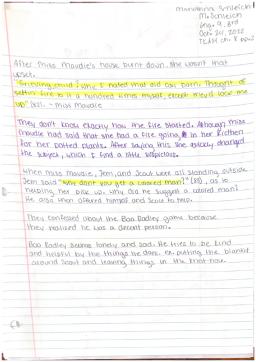 After Miss Maudie's house burnt down. She wasn't that
upset.
"Grieving, child? Why I hated that old cow barn. Thought of
settin' fire to it a hundred times myself, except they'd lock me
up." - Miss Maudie
They don't know exactly how the fire started. Although Miss
Maudie had said that she had a fire going in her kitchen
for her potted plants. After saying this she quickly changed
the subject, which I find a little suspicious.
When Miss Maudie, Jem, and Scout were all standing outside
Jem said "Why don't you get a colored man?" as to
helping her pick up. Why did he suggest a colored man?
He also then offered himself and Scout to help.
They confessed about the Boo Radley game because
they realized he was a decent person.
Boo Radley seems lonely and sad. He tries to be kind
and helpful by the things he does, ex. putting the blanket
around Scout and leaving things in the knot-hole.